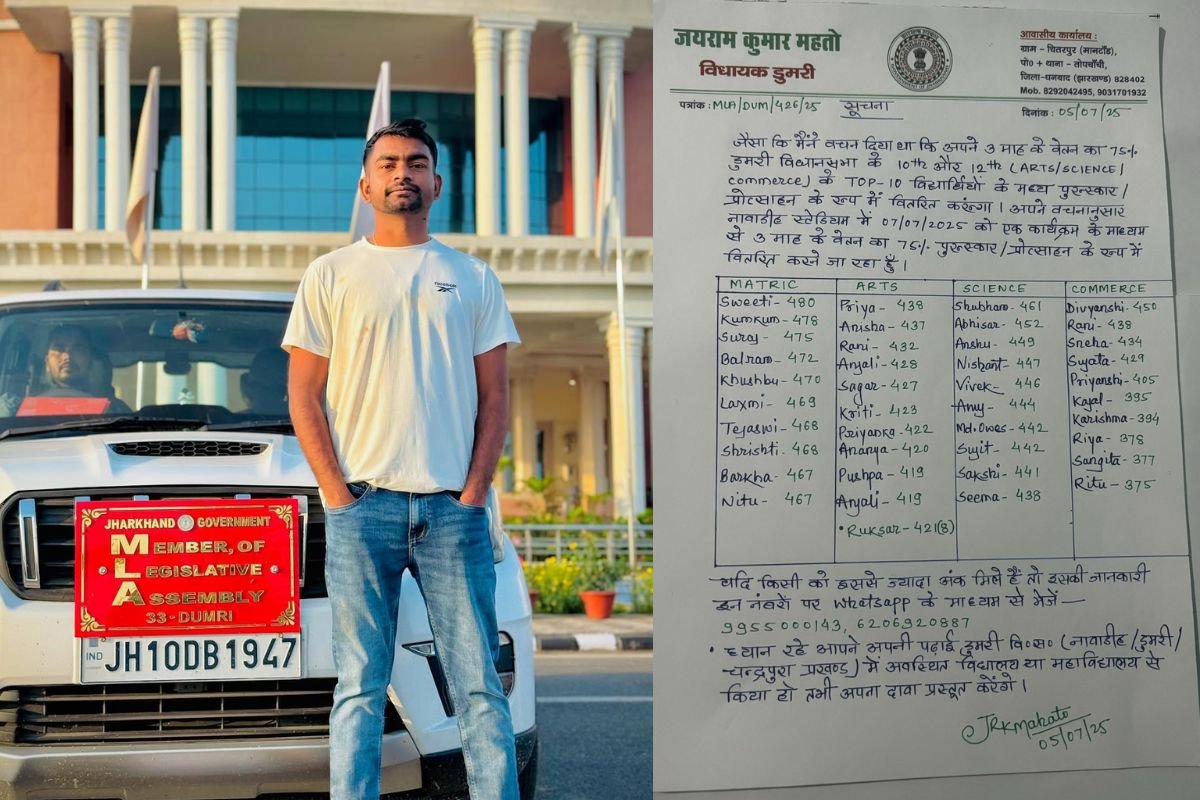 Reebok
JHARKHAND GOVERNMENT
MEMBER, OF
LEGISLATIVE
ASSEMBLY
33-DUMRI
IND JH10DB1947
जयराम कुमार महतो
विधायक डुमरी
आवासीय कार्यालय :
ग्राम - चितरपुर (मानटाँड़),
पो० + थाना - तोपचाँची,
जिला-धनबाद (झारखण्ड) 828402
Mob. 8292042495, 9031701932
पत्रांक : MLA/DUM/426/25
सूचना
दिनांक : 05/07/25
जैसा कि मैंने वचन दिया था कि अपने 3 माह के वेतन का 75%
डुमरी विधानसभा के 10th और 12th (ARTS/SCIENCE/
commerce) के TOP-10 विद्यार्थियों के मध्य पुरुस्कार/
प्रोत्साहन के रूप में वितरित करूंगा। अपने वचनानुसार
नावाडीह स्टेडियम में 07/07/2025 को एक कार्यक्रम के माध्यम
से 3 माह के वेतन का 75% पुरुस्कार/प्रोत्साहन के रूप में
वितरित करने जा रहा हूँ।
MATRIC
Sweeti - 480
Kumkum - 478
Suraj - 475
Balram - 472
Khushbu - 470
Laxmi - 469
Tejaswi - 468
Shrishti - 468
Barkha - 467
Nitu - 467
ARTS
Priya - 438
Anisha - 437
Rani - 432
Anjali - 428
Sagar - 427
Kriti - 423
Priyanka - 422
Ananya - 420
Pushpa - 419
Anjali - 419
• Ruksar - 421(8)
SCIENCE
Shubham - 461
Abhisar - 452
Anshu - 449
Nishant - 447
Vivek - 446
Anuj - 444
Md. Owes - 442
Sujit - 442
Sakshi - 441
Seema - 438
COMMERCE
Divyanshi - 450
Rani - 438
Sneha - 434
Sujata - 429
Priyanshi - 405
Kajal - 395
Karishma - 394
Riya - 378
Sangita - 377
Ritu - 375
यदि किसी को इससे ज्यादा अंक मिले हैं तो इसकी जानकारी
इन नंबरों पर Whatsapp के माध्यम से भेजें —
9955000143, 6206920887
• ध्यान रहे आपने अपनी पढ़ाई डुमरी वि०स० (नावाडीह/डुमरी/
चन्द्रपुरा प्रखण्ड) में अवस्थित विद्यालय या महाविद्यालय से
किया हो तभी अपना दावा प्रस्तूत करेंगे।
JRKMahato
05/07/25